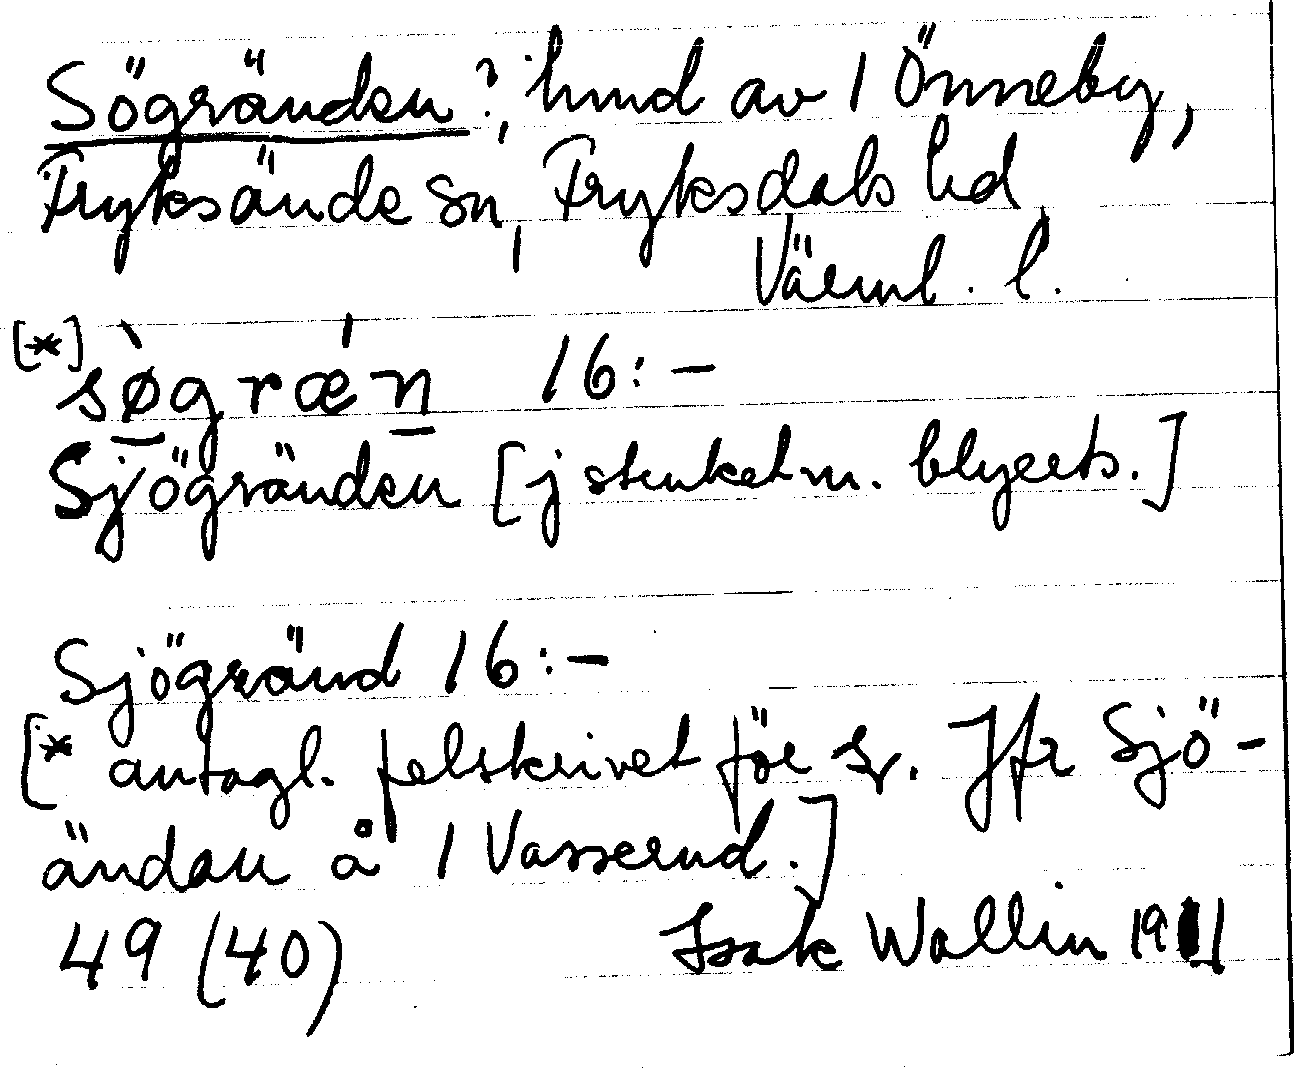 Sögränden?, hmd av 1 Önneby,
Fryksände sn, Fryksdals hd,
Värml. l.
[*] sø̀grǽn 16:–
Sjögränden [j stuket m. blyerts.]
Sjögränd 16:–
[* antagl. felskrivet för s̨. Jfr Sjö-
ändan å 1 Vasserud.]
49 (40) Isak Wallin 1911